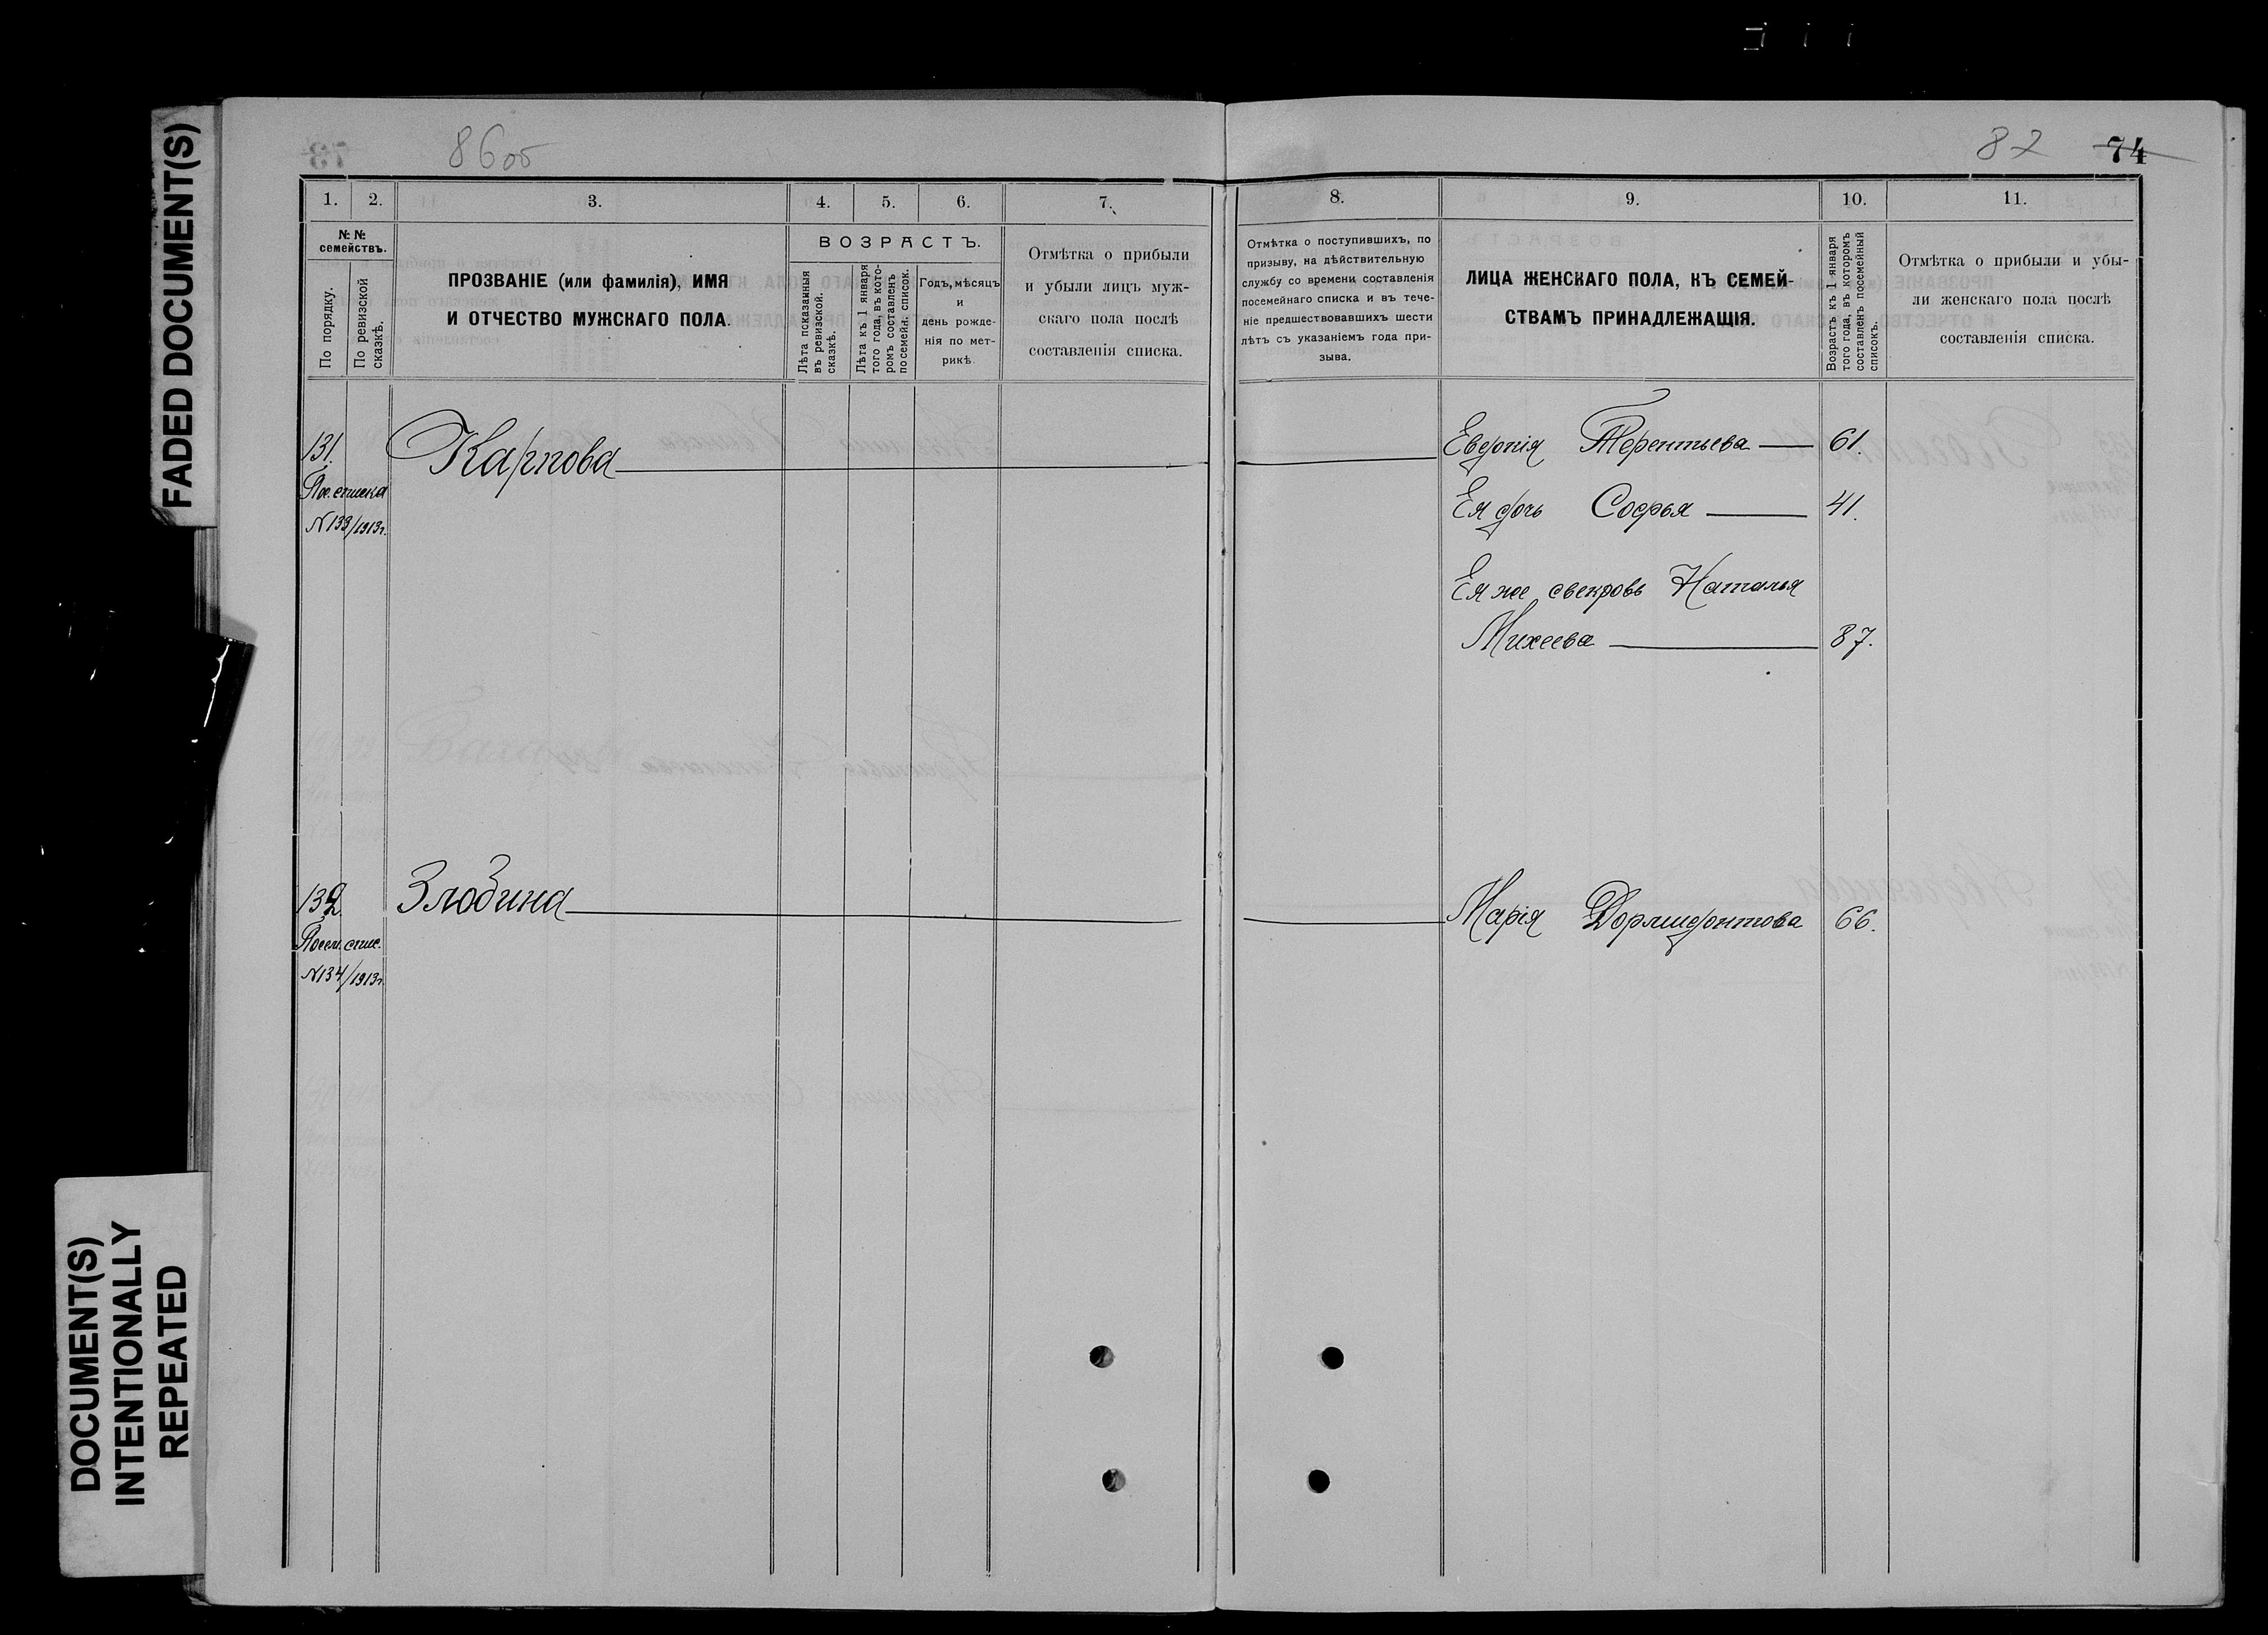 FADED DOCUMENT(S)
DOCUMENT(S)
INTENTIONALLY
REPEATED
86об
87 74
1. 2. 3. 4. 5. 6. 7.
№ №
семействъ.
По порядку.
По ревизской
сказкѣ.
ПРОЗВАНІЕ (или фамилія), ИМЯ
И ОТЧЕСТВО МУЖСКАГО ПОЛА.
ВОЗРАСТЪ.
Лѣта показанныя
въ ревизской.
сказкѣ.
Лѣта къ 1 января
того года, въ кото-
ромъ составленъ
посемейн. списокъ.
Годъ, мѣсяцъ
и
день рожде-
нія по мет-
рикѣ.
Отмѣтка о прибыли
и убыли лицъ муж-
скаго пола послѣ
составленія списка.
131. Карпова
Пос. списка
№ 133/1913г.
132. Злобина
Посем. спис.
№ 134/1913г.
8. 9. 10. 11.
Отмѣтка о поступившихъ, по
призыву, на дѣйствительную
службу со времени составленія
посемейнаго списка и въ тече-
ніе предшествовавшихъ шести
лѣтъ съ указаніемъ года при-
зыва.
ЛИЦА ЖЕНСКАГО ПОЛА, КЪ СЕМЕЙ-
СТВАМЪ ПРИНАДЛЕЖАЩІЯ.
Возрастъ къ 1 января
того года, въ которомъ
составленъ посемейный
списокъ.
Отмѣтка о прибыли и убы-
ли женскаго пола послѣ
составленія списка.
Евдокія Терентьева 61.
Ея дочь Софья 41.
Ея же свекровь Наталья
Михеева 87.
Марія Дормидонтова 66.